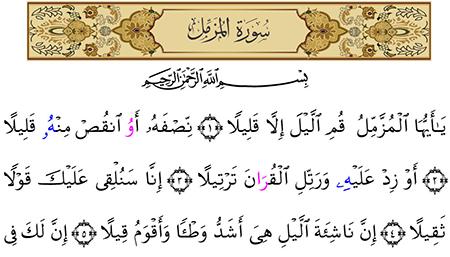 سُورَةُ المُزَّمِّل
بِسْمِ اللَّهِ الرَّحْمَٰنِ الرَّحِيمِ
يَـٰٓأَيُّهَا ٱلْمُزَّمِّلُ قُمِ ٱلَّيْلَ إِلَّا قَلِيلًا ﴿١﴾ نِّصْفَهُۥٓ أَوُ ٱنقُصْ مِنْهُۥ قَلِيلًا
﴿٢﴾ أَوْ زِدْ عَلَيْهِۦ وَرَتِّلِ ٱلْقُرَانَ تَرْتِيلًا ﴿٣﴾ إِنَّا سَنُلْقِى عَلَيْكَ قَوْلًا
ثَقِيلًا ﴿٤﴾ إِنَّ نَاشِئَةَ ٱلَّيْلِ هِىَ أَشَدُّ وَطْـًٔا وَأَقْوَمُ قِيلًا ﴿٥﴾ إِنَّ لَكَ فِى